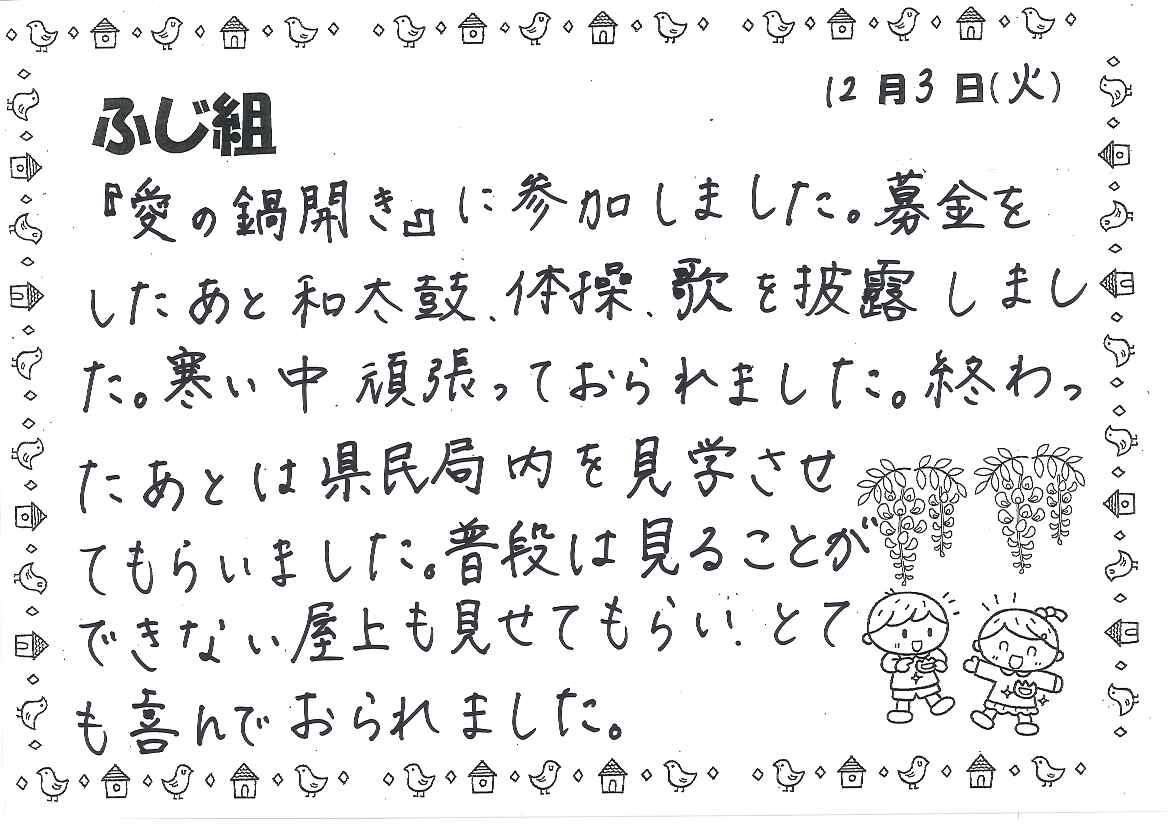 12月3日(火)
ふじ組
『愛の鍋開き』に参加しました。募金を
したあと和太鼓、体操、歌を披露しまし
た。寒い中頑張っておられました。終わっ
たあとは県民局内を見学させ
てもらいました。普段は見ることが
できない屋上も見せてもらい、とて
も喜んでおられました。